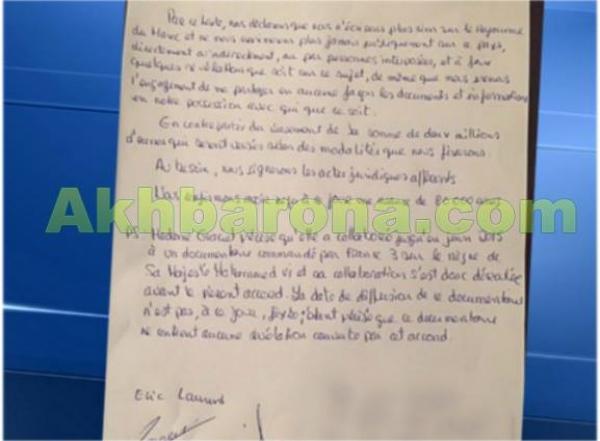 Par ce texte, nous déclarons que nous n'écrirons plus rien sur le Royaume
du Maroc et ne nous exprimerons plus jamais publiquement sur ce pays,
directement ou indirectement, ou par personnes interposées, et à faire
quelques révélation que soit sur ce sujet, de même que nous prenons
l'engagement de ne partager en aucune façon les documents et informations
en notre possession avec qui que ce soit.
En contrepartie du versement de la somme de deux millions
d'euros qui seront versés selon des modalités que nous fixerons.
Au besoin, nous signerons les actes juridiques afférents
à de 80 000 euros
Akhbarona.com
PS - Madame Graciet précise qu'elle a collaboré jusqu'en juin 2015
à un documentaire commandé par France 3 sur le règne de
Sa Majesté Mohammed VI et sa collaboration s'est donc déroulée
avant le présent accord. La date de diffusion de ce documentaire
n'est pas, à ce jour, fixée; précisé que ce documentaire
ne contient aucune révélation couverte par cet accord.
Eric Laurent